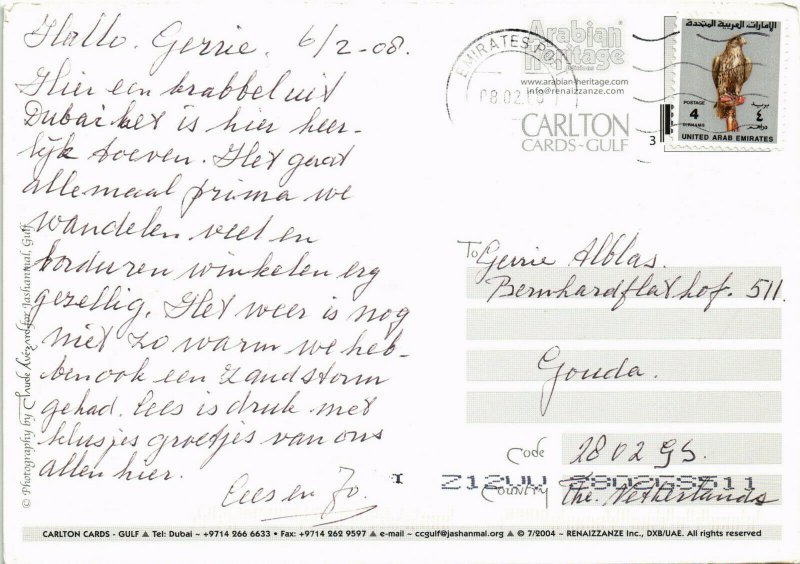 Hallo. Gerrie. 6/2-08.
Hier een krabbel uit
Dubai het is hier heer-
lijk toeven. Het gaat
allemaal prima we
wandelen veel en
borduren winkelen erg
gezellig. Het weer is nog
niet zo warm we heb-
ben ook een zandstorm
gehad. Cees is druk met
klusjes groetjes van ons
allen hier.
Cees en Jo.
© Photography by Claude Avézard for Jashanmal, Gulf
Arabian
Heritage
www.arabian-heritage.com
info@renaizzanze.com
CARLTON
CARDS-GULF
3
EMIRATES POS
08.02.
الامارات العربية المتحدة
POSTAGE
4
DIRHAMS
بريد
٤
دراهم
UNITED ARAB EMIRATES
To Gerrie Alblas.
Bernhardflat hof. 511.
Gouda.
Code 2802 GS.
Country The. Netherlands
CARLTON CARDS - GULF ▲ Tel: Dubai ~ +9714 266 6633 • Fax: +9714 262 9597 ▲ e-mail ~ ccgulf@jashanmal.org ▲ © 7/2004 ~ RENAIZZANZE Inc., DXB/UAE. All rights reserved